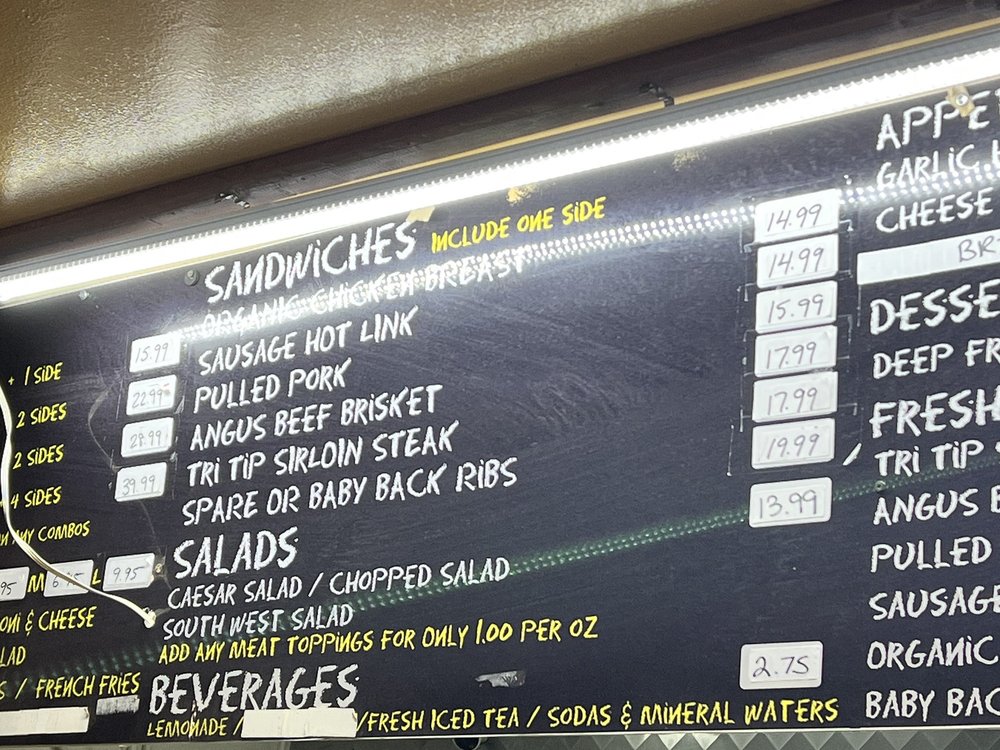 + 1 SIDE 15.99
2 SIDES 22.99
2 SIDES 28.99
4 SIDES 39.99
ANY COMBOS
95 M L 9.95
ONI & CHEESE
LAD
S / FRENCH FRIES
SANDWICHES INCLUDE ONE SIDE
ORGANIC CHICKEN BREAST 14.99
SAUSAGE HOT LINK 14.99
PULLED PORK 15.99
ANGUS BEEF BRISKET 17.99
TRI TIP SIRLOIN STEAK 17.99
SPARE OR BABY BACK RIBS 19.99
SALADS
CAESAR SALAD / CHOPPED SALAD 13.99
SOUTH WEST SALAD
ADD ANY MEAT TOPPINGS FOR ONLY 1.00 PER OZ
BEVERAGES 2.75
LEMONADE / /FRESH ICED TEA / SODAS & MINERAL WATERS
APPE
GARLIC
CHEESE
BR
DESSE
DEEP FR
FRESH
TRI TIP
ANGUS B
PULLED
SAUSAGE
ORGANIC
BABY BAC